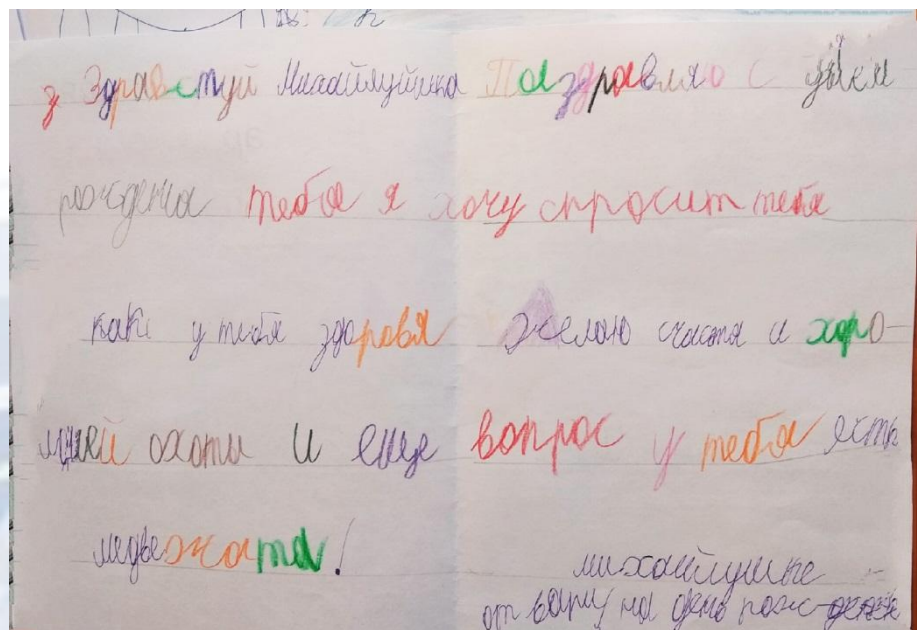 з Здравствуй Михайлуйшка Паздравляю с
рождения тебя я хочу спросит тебя
как у тебя здоровя желаю счастя и харо-
шей охоты и еще вопрос у тебя есть
медвежата!
михайлушке
от вари на день рож-